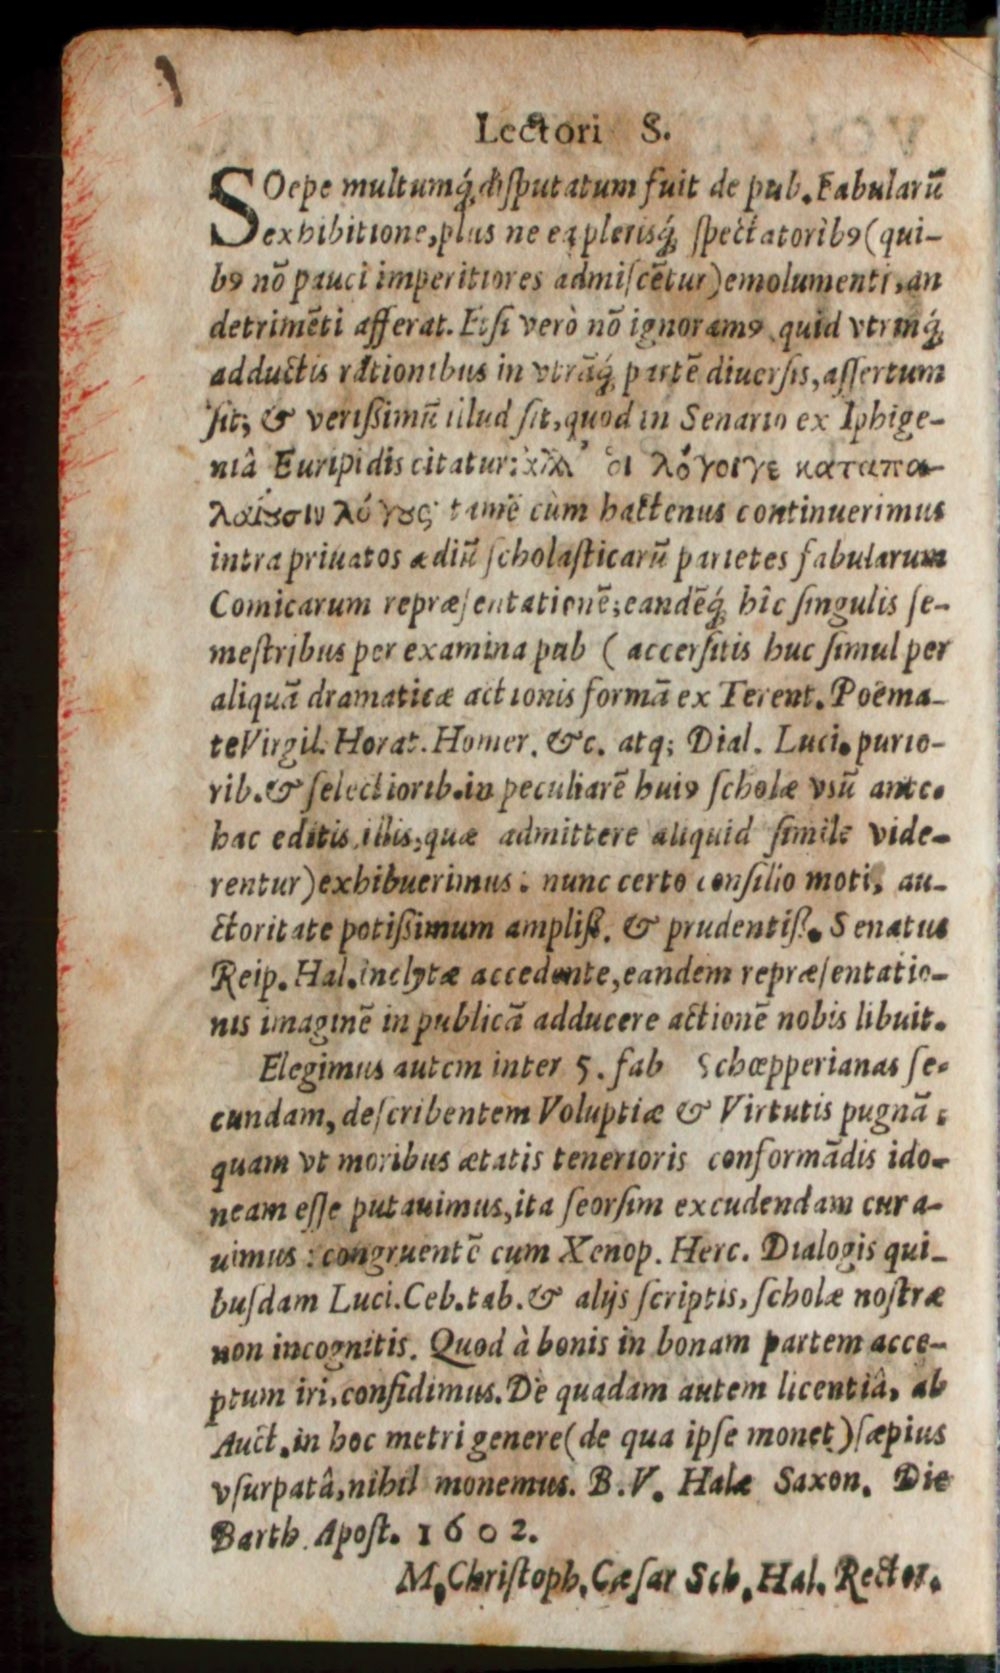 Lectori S.
SOepe multumq́; diſputatum fuit de pub. Fabularū
exhibitione, plus ne ea plerisq́; ſpectatoribꝰ (qui-
bꝰ nō pauci imperitiores admiſcētur) emolumenti, an
detrimēti afferat. Etſi verò nō ignoramꝰ quid vtrinq́;
adductis rationibus in vtrāq́; partē diuerſis, aſſertum
ſit; & verißimū illud ſit, quod in Senario ex Iphige-
niâ Euripidis citatur: ἀλλ’ οἱ λόγοιγε καταπα-
λαίȣσιν λόγȣς· tamē cùm hactenus continuerimus
intra priuatos ædiū ſcholaſticarū parietes fabularum
Comicarum repræſentationē; eandēq́; hîc ſingulis ſe-
meſtribus per examina pub ( accerſitis huc ſimul per
aliquā dramaticæ actionis formā ex Terent. Poëma-
te Virgil. Horat. Homer. &c. atq; Dial. Luci. purio-
rib. & ſelectiorib. in peculiarē huiꝰ ſcholæ vsū ante-
hac editis illis, quæ admittere aliquid ſimile vide-
rentur) exhibuerimus: nunc certo conſilio moti, au-
ctoritate potißimum ampliß. & prudentiß. Senatus
Reip. Hal. inclytæ accedente, eandem repræſentatio-
nis imaginē in publicā adducere actionē nobis libuit.
Elegimus autem inter 5. fab Schœpperianas ſe-
cundam, deſcribentem Voluptiæ & Virtutis pugnā:
quam vt moribus ætatis tenerioris conformādis ido-
neam eſſe putauimus, ita ſeorſim excudendam cura-
uimus: congruentē cum Xenop. Herc. Dialogis qui-
buſdam Luci. Ceb. tab. & alijs ſcriptis, ſcholæ noſtræ
non incognitis. Quod à bonis in bonam partem acce-
ptum iri, confidimus. De quadam autem licentiâ, ab
Auct. in hoc metri genere (de qua ipſe monet) ſæpius
vſurpatâ, nihil monemus. B. V. Halæ Saxon. Die
Barth. Apoſt. 1602.
M. Chriſtoph. Cæſar Sch. Hal. Rector.